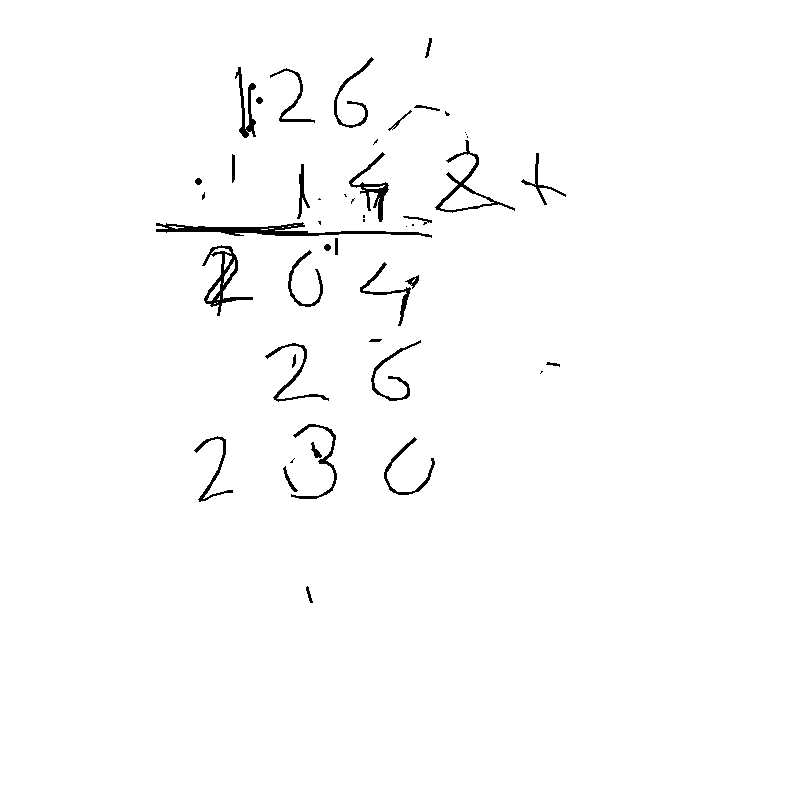 126
14 2 +
204
26
230